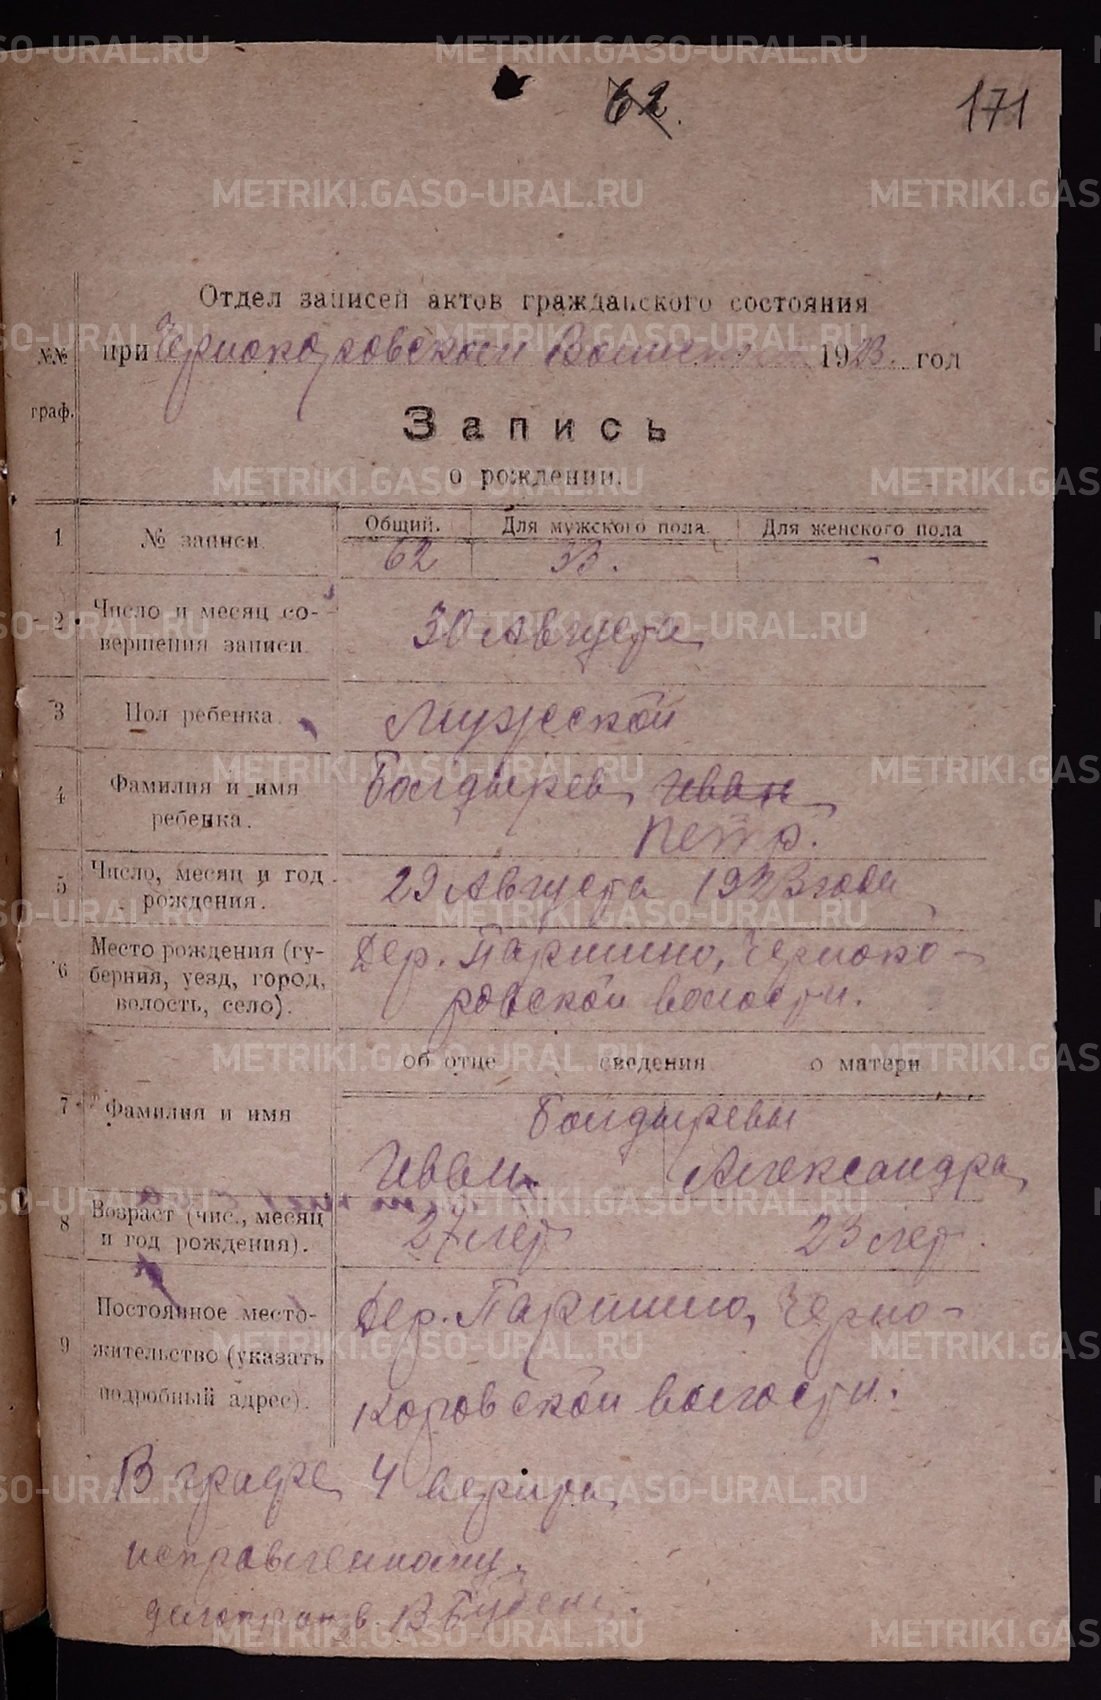 62.
171
Отдел записей актов гражданского состояния
№№ при Чернокоровской 1923. год
граф.
Запись
о рождении.
Общий. Для мужского пола. Для женского пола
1 № записи. 62 33. -
2 Число и месяц со-
вершения записи. 30 Августа
3 Пол ребенка. Мужской
4 Фамилия и имя Болдырев Иван
ребенка. Петр.
5 Число, месяц и год 29 Августа 1923 года
рождения.
6 Место рождения (гу- Дер. Паршино, Черноко-
берния, уезд, город, ровской волости.
волость, село).
об отце сведения о матери
7 Фамилия и имя Болдыревы
Иван Александра
8 Возраст (чис., месяц 27 лет 23 лет.
и год рождения).
9 Постоянное место- Дер. Паршино, Черно-
жительство (указать
подробный адрес). коровской волости.
В графе 4 верить
исправленному.
METRIKI.GASO-URAL.RU